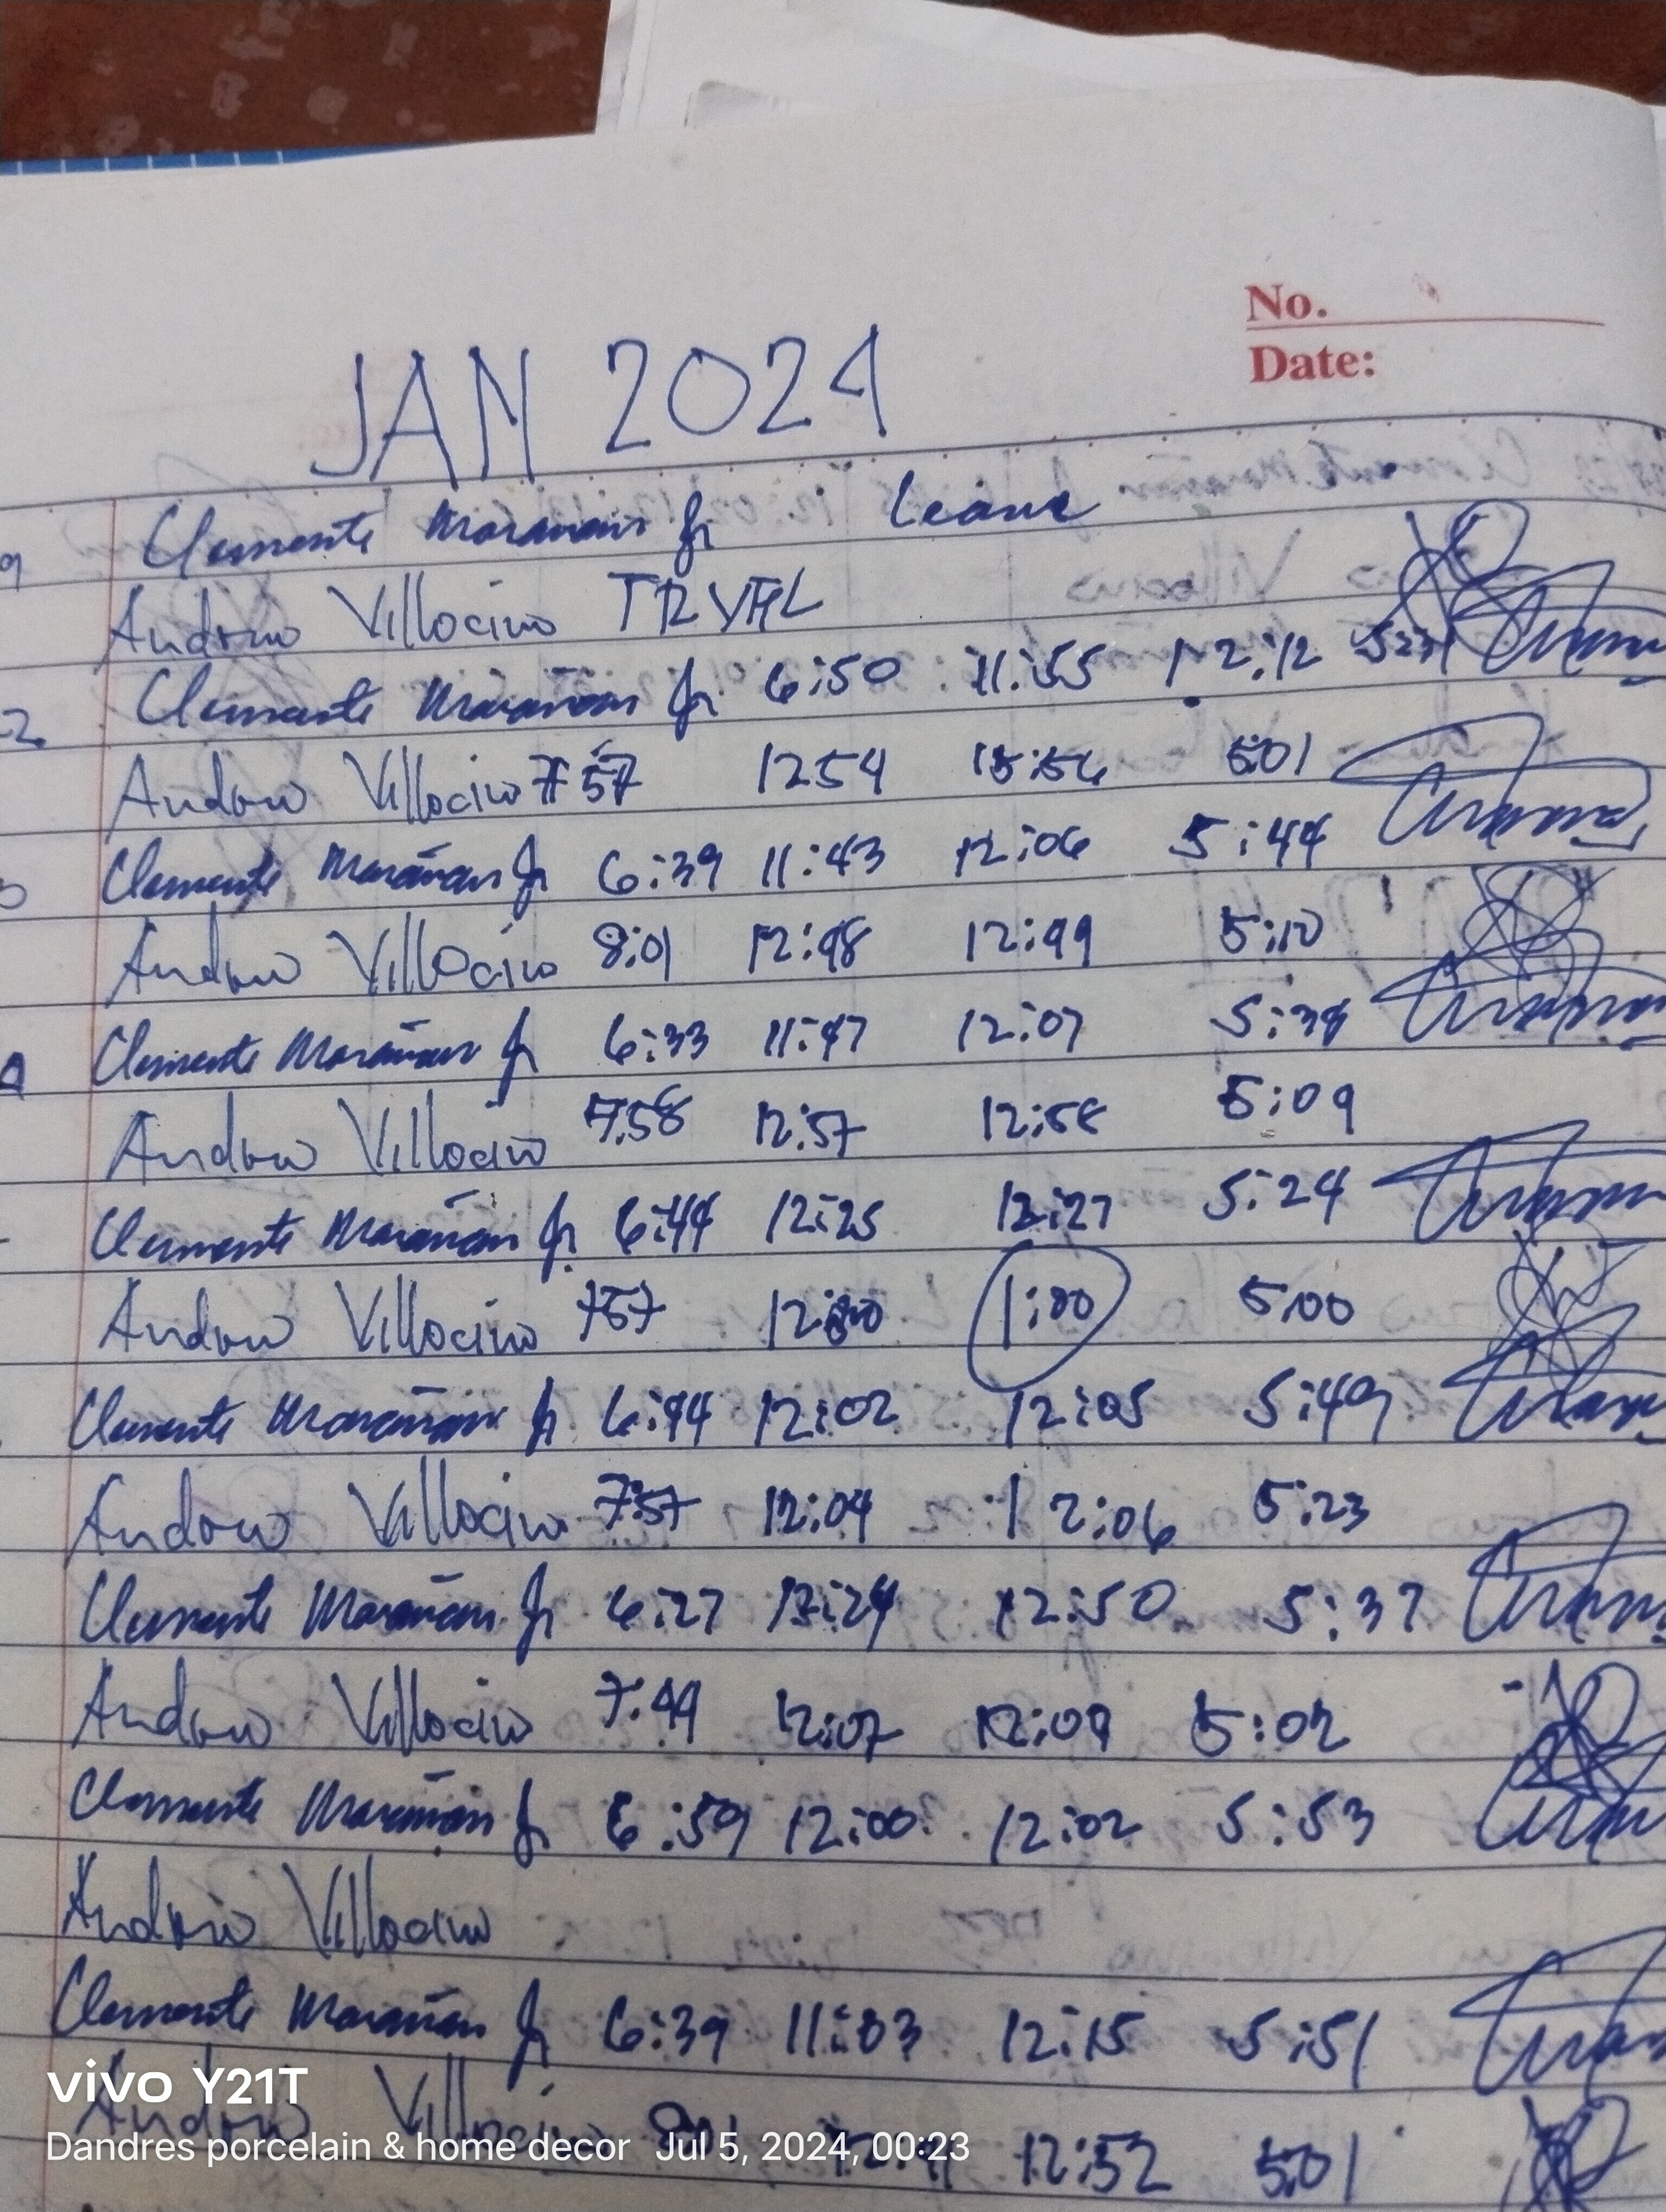 No.
Date:
JAN 2024
9 Clemente Marañan Jr Leave
Andrew Villocino TRVEL
2 Clemente Marañan Jr 6:50 11:55 12:12 5:23
Andrew Villocino 7:57 1254 12:56 5:01
Clemente Marañan Jr 6:39 11:43 12:06 5:44
Andrew Villocino 8:01 12:48 12:49 5:10
Clemente Marañan Jr 6:33 11:47 12:07 5:38
Andrew Villocino 7:58 12:57 12:58 5:09
Clemente Marañan Jr 6:44 12:25 12:27 5:24
Andrew Villocino 757 1:00 5:00
Clemente Marañan Jr 6:44 12:02 12:05 5:49
Andrew Villocino 7:57 12:04 12:06 5:23
Clemente Marañan Jr 6:27 12:24 12:50 5:37
Andrew Villocino 7:49 12:07 12:09 5:02
Clemente Marañan Jr 6:59 12:00 12:02 5:53
Andrew Villocino
Clemente Marañan Jr 6:39 11:03 12:15 5:51
Andrew Villocino 12:52 5:01
vivo Y21T
Dandres porcelain & home decor Jul 5, 2024, 00:23